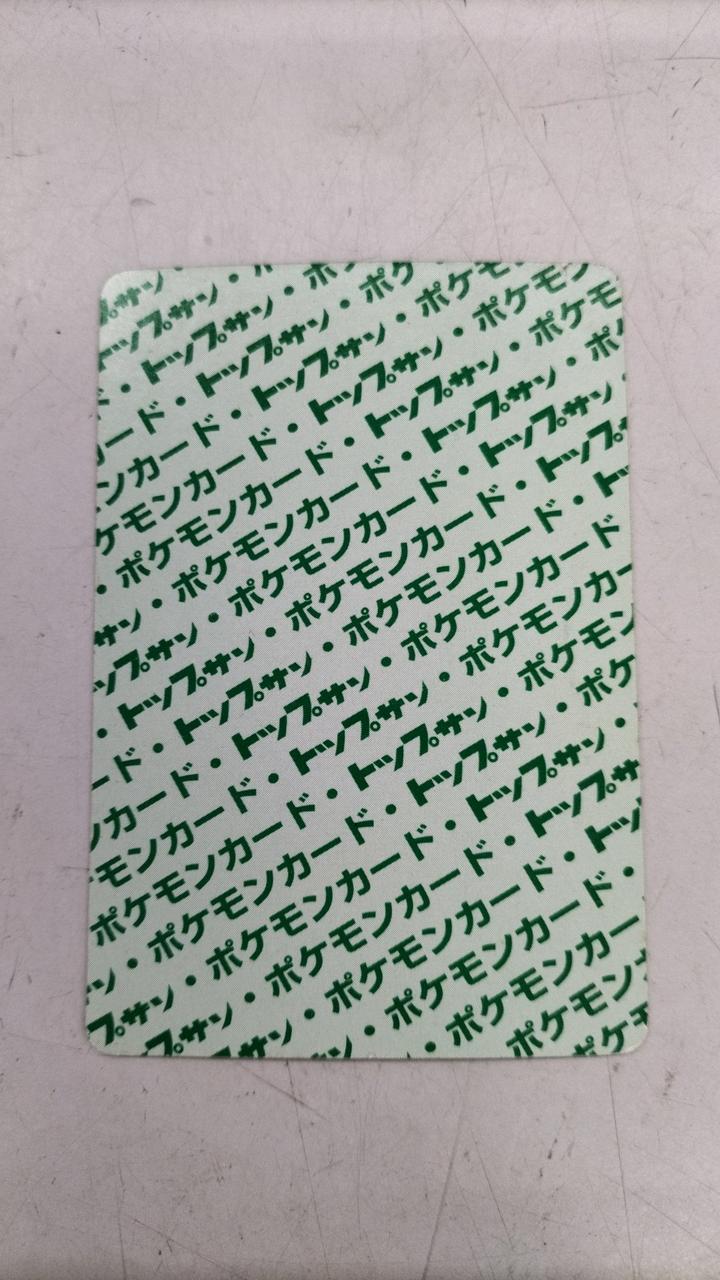 サン
トップサン
・トップサン・ポ
ード・トップサン・ポケ
ンカード・トップサン・ポケモ
ケモンカード・トップサン・ポケモ
・ポケモンカード・トップサン・ポケモ
サン・ポケモンカード・トップサン・ポ
ップサン・ポケモンカード・トップサン・
・トップサン・ポケモンカード・トップ
ード・トップサン・ポケモンカード・ト
カード・トップサン・ポケモンカード
モンカード・トップサン・ポケモンカー
ポケモンカード・トップサン・ポケモン
ン・ポケモンカード・トップサン・ポケ
プサン・ポケモンカード・トップサン・
プサン・ポケモンカード・トップサ
サン・ポケモンカード・トッ
ン・ポケモンカード・
・ポケモンカー
ポケモン
ポケ